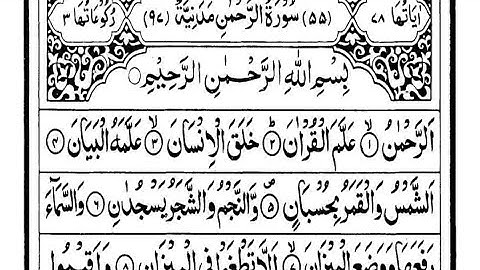 اٰيَاتُهَا ٧٨ (٥٥) سُوْرَةُ الرَّحْمٰنِ مَدَنِيَّةٌ (٩٧) رُكُوْعَاتُهَا ٣
بِسْمِ اللّٰهِ الرَّحْمٰنِ الرَّحِيْمِ
اَلرَّحْمٰنُ ۙ﴿١﴾ عَلَّمَ الْقُرْاٰنَ ؕ﴿٢﴾ خَلَقَ الْاِنْسَانَ ۙ﴿٣﴾ عَلَّمَهُ الْبَيَانَ ﴿٤﴾
اَلشَّمْسُ وَالْقَمَرُ بِحُسْبَانٍ ۪﴿٥﴾ وَّالنَّجْمُ وَالشَّجَرُ يَسْجُدٰنِ ﴿٦﴾ وَالسَّمَآءَ
رَفَعَهَا وَوَضَعَ الْمِيْزَانَ ۙ﴿٧﴾ اَلَّا تَطْغَوْا فِي الْمِيْزَانِ ﴿٨﴾ وَاَقِيْمُوا